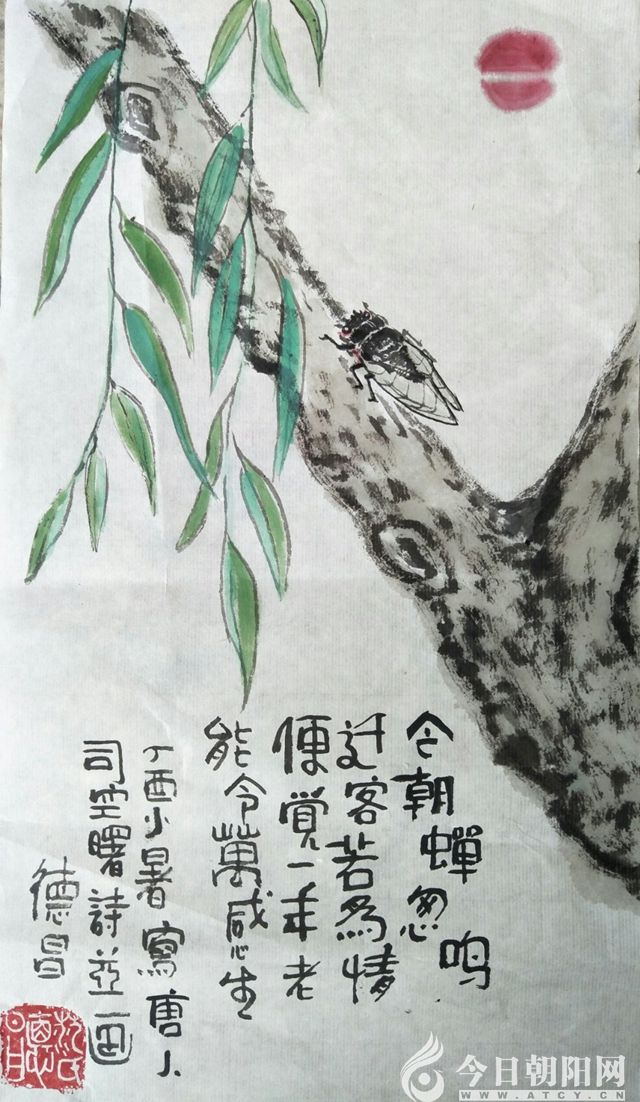 今朝蝉忽鸣
迁客若為情
便覺一年老
能令萬感生
丁酉小暑寫唐人
司空曙詩並画
德昌
今日朝阳网
WWW.ATCY.CN